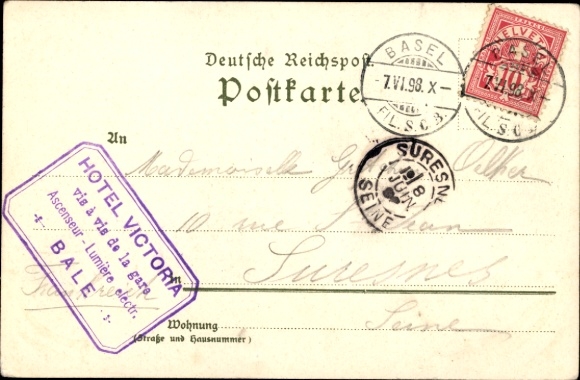 Deutsche Reichspost.
Postkarte
BASEL
-7.VI.98. X-
FIL. S. C. B.
BASEL
7.VI.98.
FIL. S. C. B.
HELVETIA
10
SURESNES
8
JUIN
SEINE
An
Mademoiselle
10 rue
in Suresnes
Seine
Frankreich
HOTEL VICTORIA
vis à vis de la gare
Ascenseur - Lumière électr.
BALE
Wohnung
(Straße und Hausnummer)